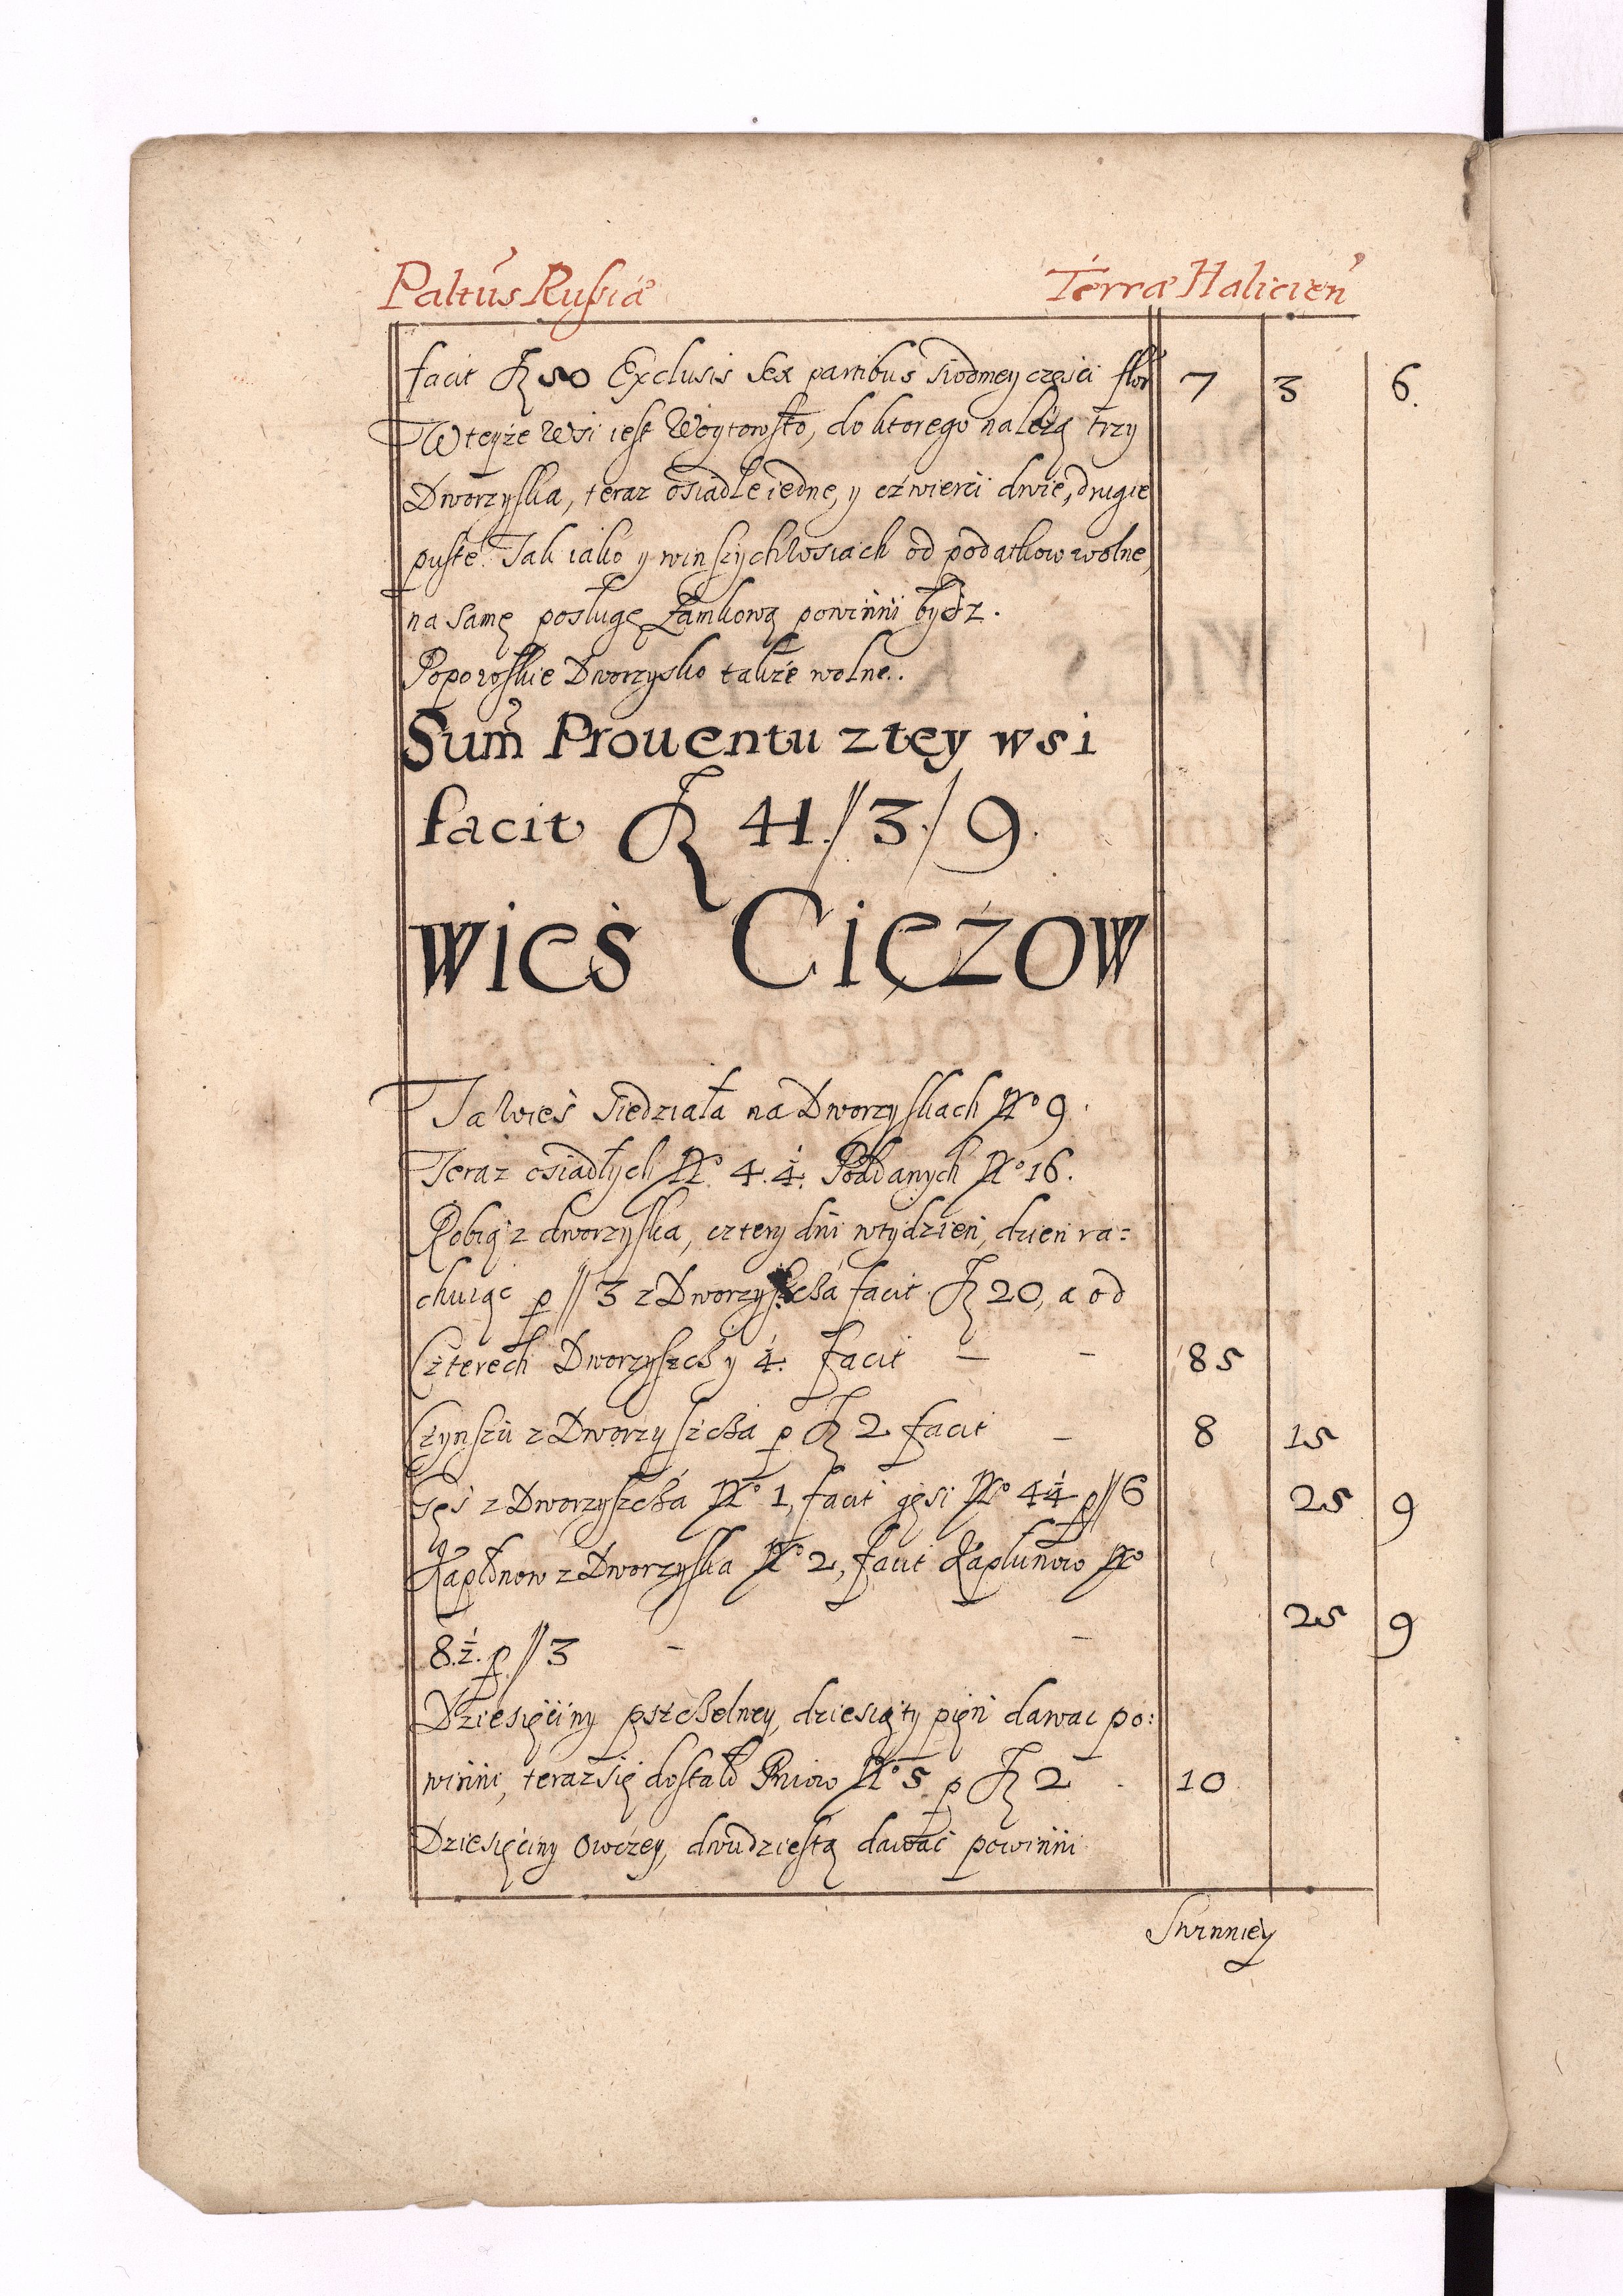 Paltus Russiæ Terræ Halicien
facit fl 50 Exclusis Sex partibus siodmey częsci flor 7 3 6.
W teyże Wsi iest Woytowsto, do ktorego należą trzy
Dworzyska, teraz osiadłe iedne, y czwierci dwie, drugie
puste. Tak iako y w inszych wsiach od podatkow wolne,
na samę posługę Zamkową powinni bydz.
Popowskie Dworzysko także wolne.
Sum Prouentu z tey wsi
facit fl 41 // 3 / 9.
wies Ciężow
Ta Wies siedziała na Dworzyskach No 9.
Teraz osiadłych No 4. 1/4. Poddanych No 16.
Robią z dworzyska, cztery dni w tydzien, dzien ra=
chuiąc p // 3 z Dworzyszcza facit fl 20, a od
Czterech Dworzyszcz y 1/4. facit — — 85
Czynszu z Dworzyszcza p fl 2 facit — 8 15
Gęs z Dworzyszcza No 1, facit gęsi No 4 1/4 p // 6 25 9
Kapłonow z Dworzyska No 2, facit Kapłunow No
8. 1/2. p // 3 — — 25 9
Dziesięciny pszczelney, dziesiąty pięn dawac po:
winni, teraz się dostało Pniow No 5 p fl 2 10
Dziesięciny owczey, dwudziestą dawac powinni